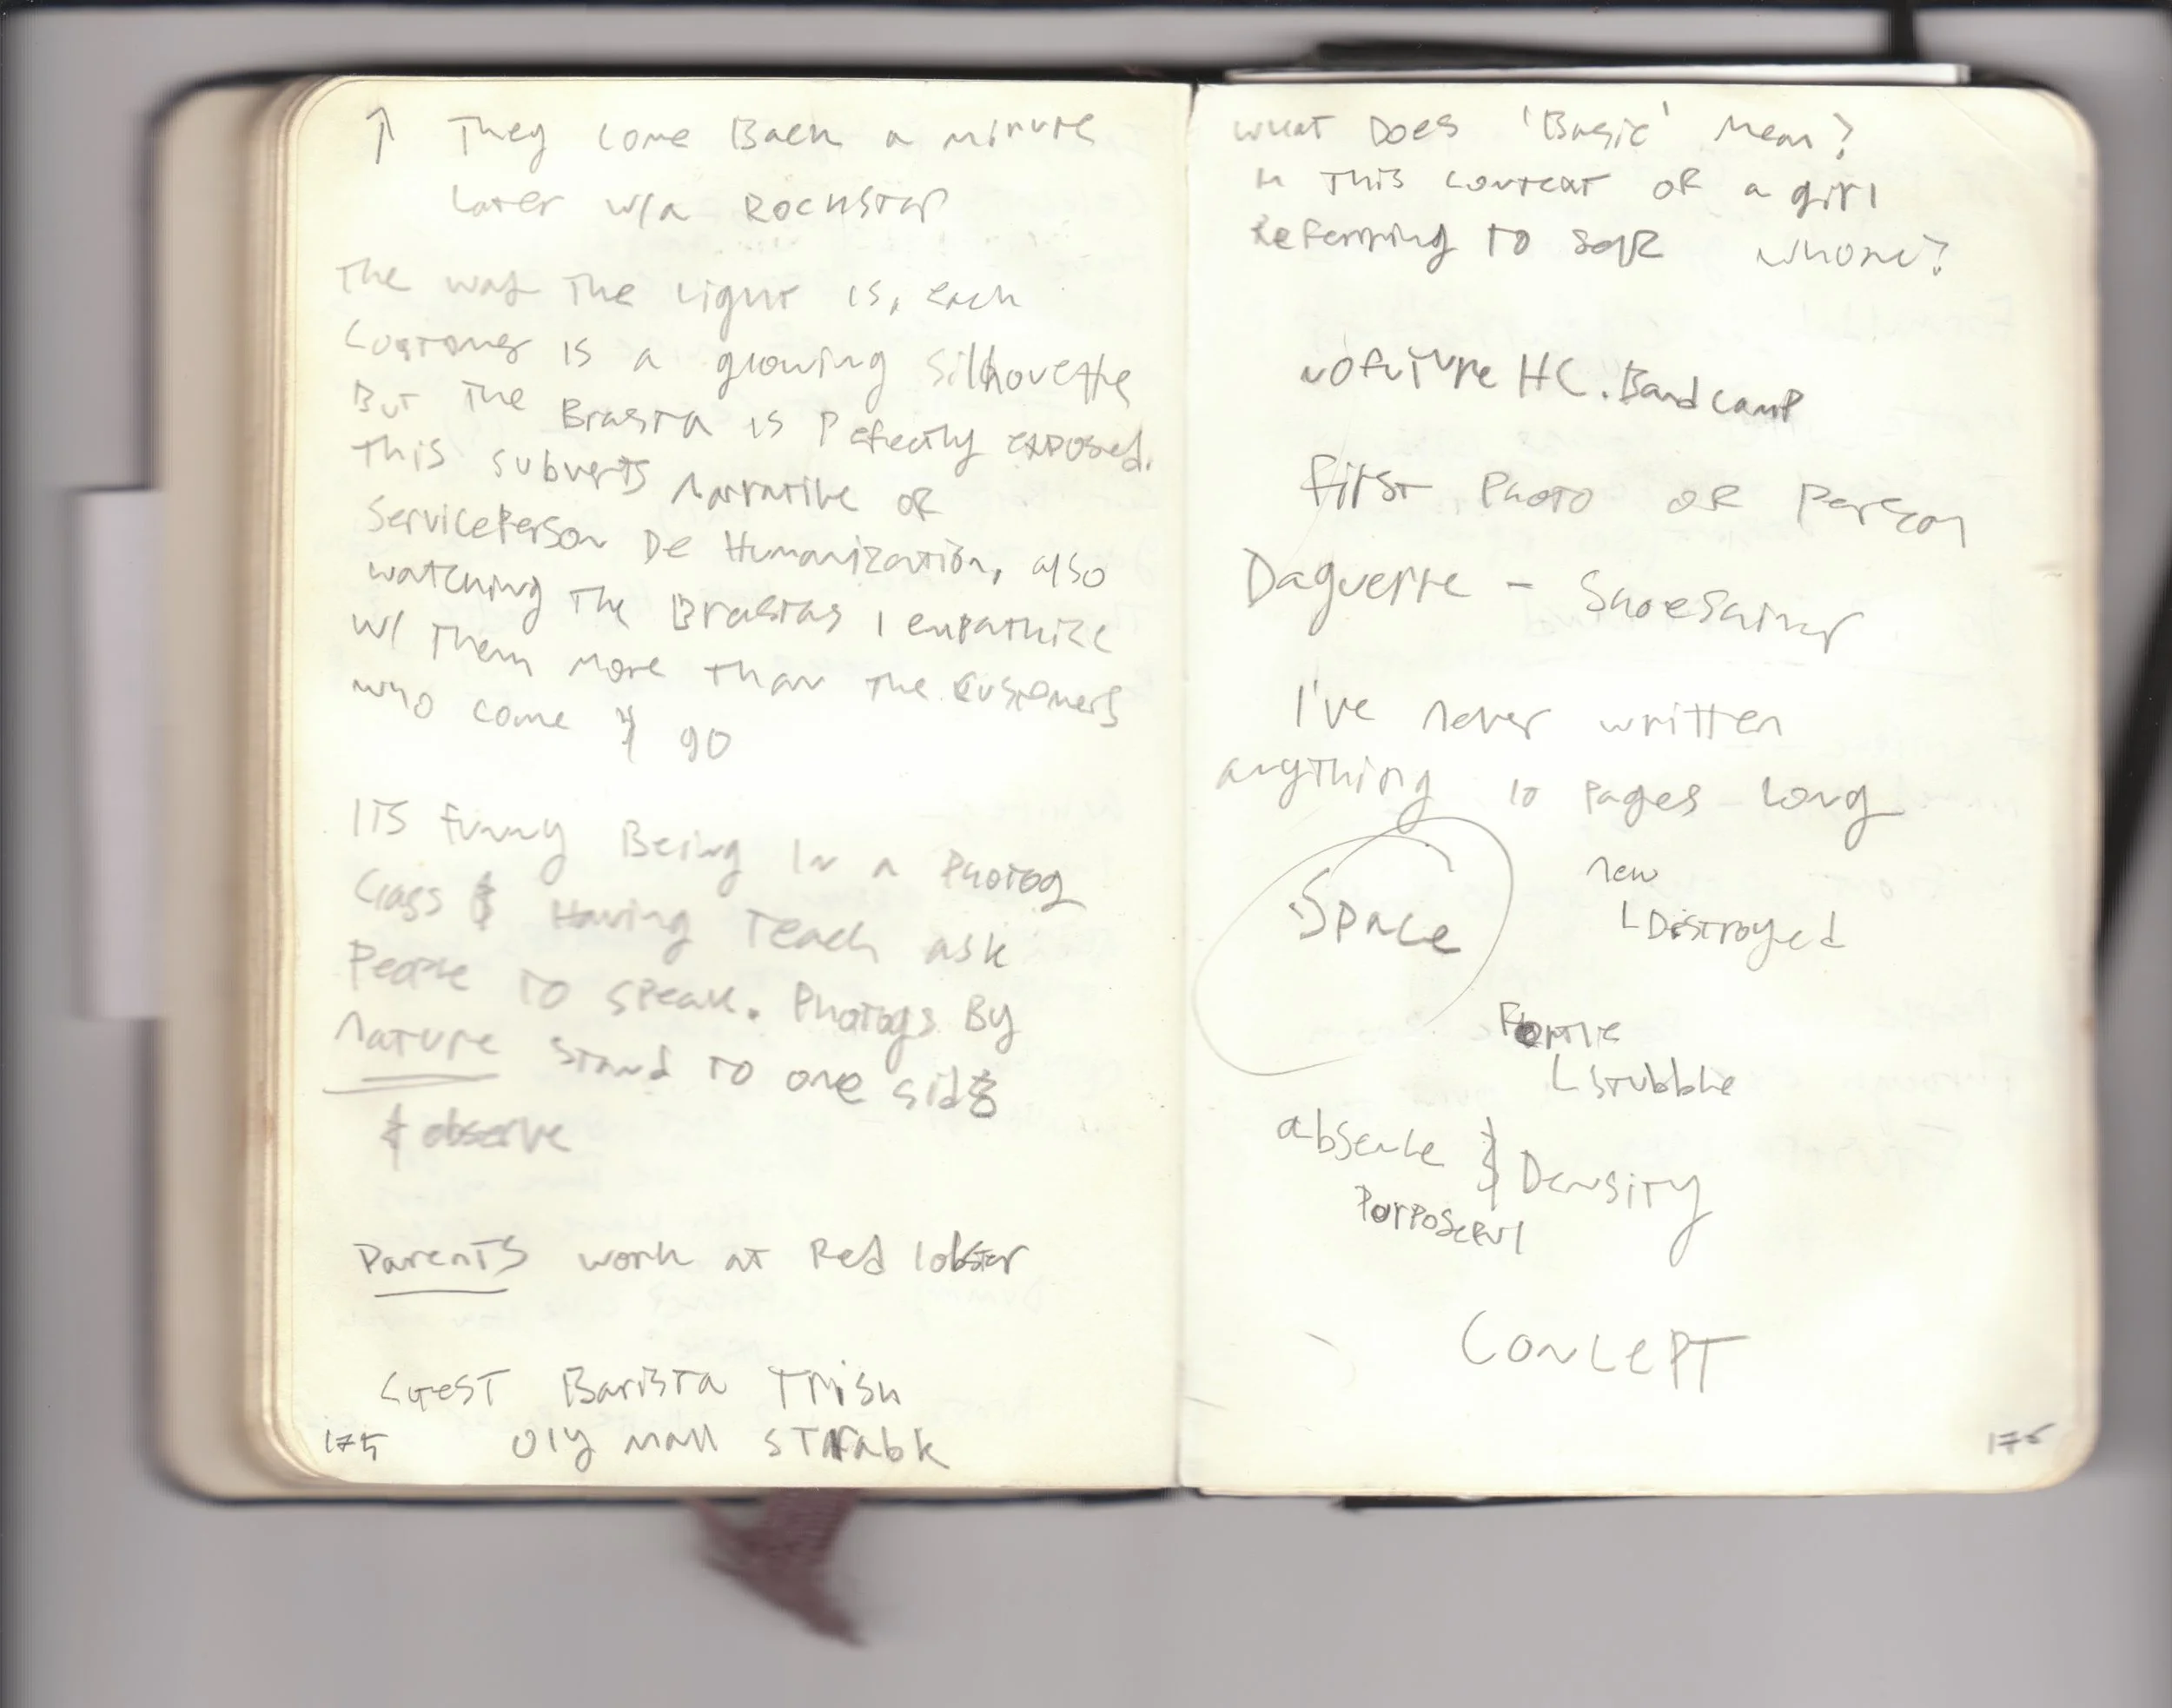 ↑ They come Back a minute
Later w/a Rockstar
The way The Light is, each
Customer is a growing Silhouette
But The Brasta is Pefectly exposed.
This subverts narrative of
ServicePerson De Humanization, also
watching The Brastas I empathize
w/ Them more Than The customers
who come & go
ITS funny Being In a Photog
Class & Having Teach ask
People To speak. Photogs By
Nature Stand To one side
& observe
Parents work at Red lobster
Guest Barista Trish
Oly mall starabk
175
What Does 'Basic' Mean?
In This context of a girl
Referring to self whore?
nofuture HC.Bandcamp
first Photo of Person
Daguerre - Shoeshiner
I've never written
anything 10 Pages Long
Space
new
Distroyed
Fertile
Stubble
absence & Density
Porposeful
CONCEPT
176